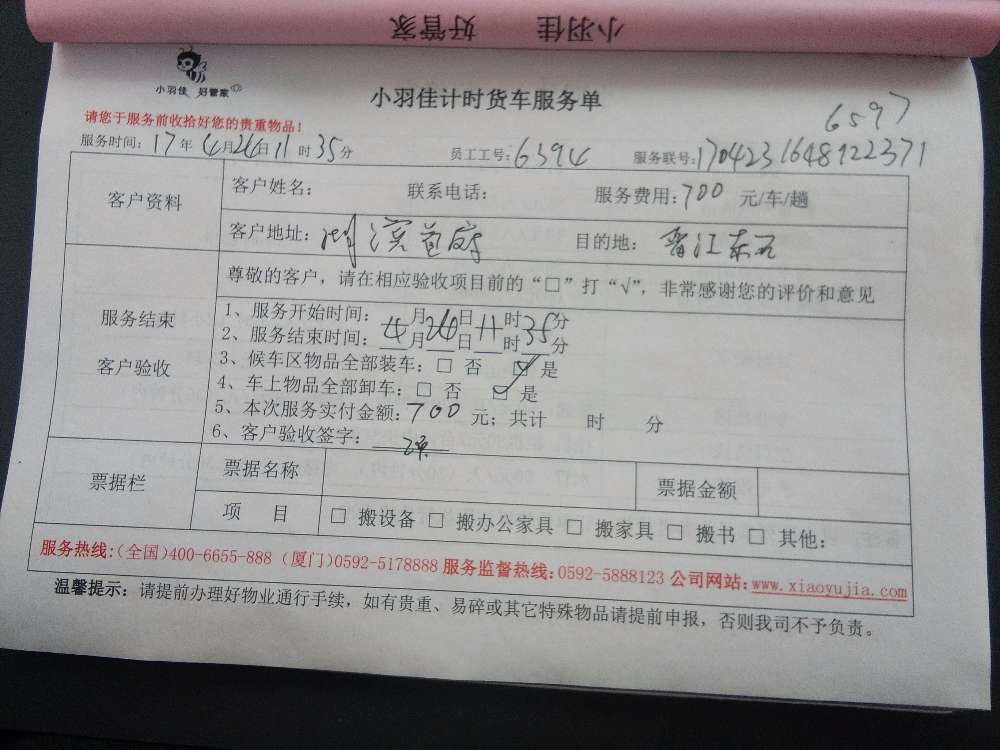 小羽佳 好管家
小羽佳 好管家
小羽佳计时货车服务单
6597
请您于服务前收拾好您的贵重物品！
服务时间：17年4月26日11时35分 员工工号：6394 服务联号：1704231648122371
客户资料
客户姓名： 联系电话： 服务费用：700 元/车/趟
客户地址： 目的地：晋江东石
服务结束
客户验收
尊敬的客户，请在相应验收项目前的“□”打“√”，非常感谢您的评价和意见
1、服务开始时间： 月 日 时 分
2、服务结束时间：4月26日11时35分
3、候车区物品全部装车：□ 否 ☑ 是
4、车上物品全部卸车：□ 否 ☑ 是
5、本次服务实付金额：700 元；共计 时 分
6、客户验收签字：
票据栏
票据名称 票据金额
项 目 □ 搬设备 □ 搬办公家具 □ 搬家具 □ 搬书 □ 其他：
服务热线：(全国)400-6655-888 (厦门)0592-5178888 服务监督热线：0592-5888123 公司网站：www.xiaoyujia.com
温馨提示：请提前办理好物业通行手续，如有贵重、易碎或其它特殊物品请提前申报，否则我司不予负责。